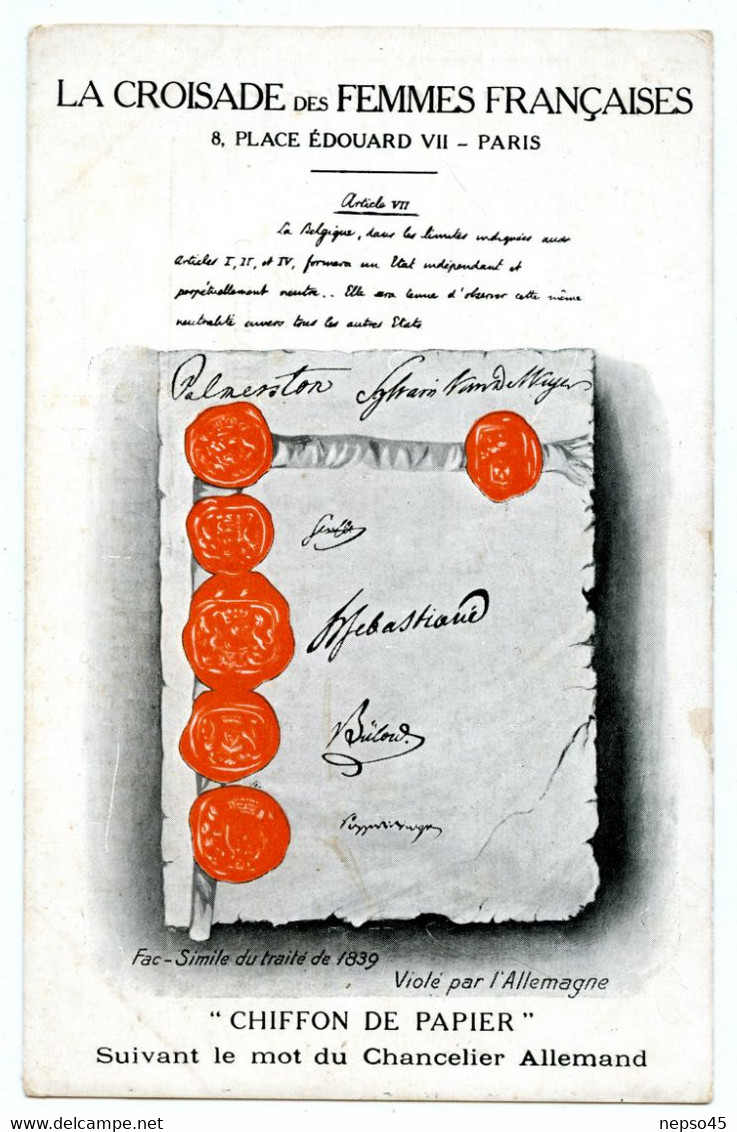 LA CROISADE DES FEMMES FRANÇAISES
8, PLACE ÉDOUARD VII - PARIS
Article VII
La Belgique, dans les limites indiquées aux
Articles I, II, et IV, formera un Etat indépendant et
perpétuellement neutre.. Elle sera tenue d'observer cette même
neutralité envers tous les autres Etats
Palmerston Sylvain Van de Weyer
Sebastiani
Bülow.
Fac-Simile du traité de 1839
Violé par l'Allemagne
" CHIFFON DE PAPIER "
Suivant le mot du Chancelier Allemand
Delcampe.net
nepso45